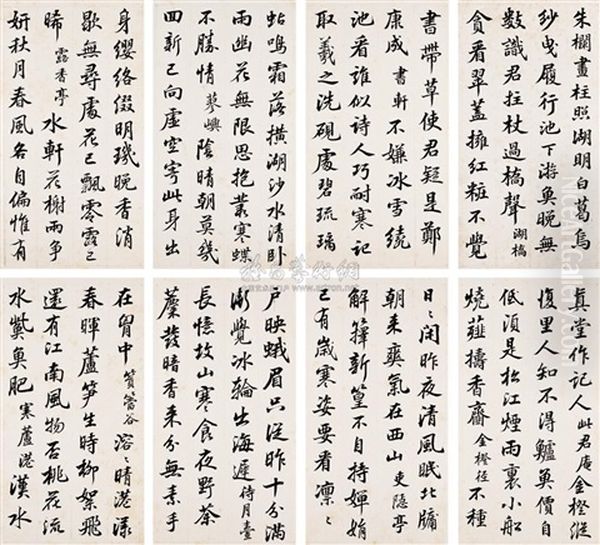 朱欄畫柱照湖明白葛烏
紗曳履行池下游魚晚無
數識君拄杖過橋聲 湖橋
貪看翠蓋擁紅粧不覺
書帶草使君疑是鄭
康成 書軒 不嫌冰雪繞
池看誰似詩人巧耐寒記
取羲之洗硯處碧琉璃
蛄鳴霜落橫湖沙水清卧
雨幽花無限思抱叢寒蝶
不勝情 蓼嶼 陰晴朝莫幾
回新已向虛空寄此身出
身纓絡綴明璣晚香消
歇無尋處花已飄零露已
晞 露香亭 水軒花榭兩爭
妍秋月春風各自偏惟有
真堂作記人 此君庵 金橙縱
復里人知不得鱸魚價自
低須是松江煙雨裏小船
燒薤擣香齏 金橙徑 不種
日〻閒昨夜清風眠北牖
朝來爽氣在西山 吏隱亭
解籜新篁不自持嬋娟
已有歲寒姿要看凜〻
戶映蛾眉只從昨十分滿
漸覺冰輪出海遲 待月臺
長憶故山寒食夜野荼
蘼發暗香來分無素手
在胷中 篔簹谷 溶〻晴港漾
春暉蘆笋生時柳絮飛
還有江南風物否桃花流
水鮆魚肥 寒蘆港 漢水